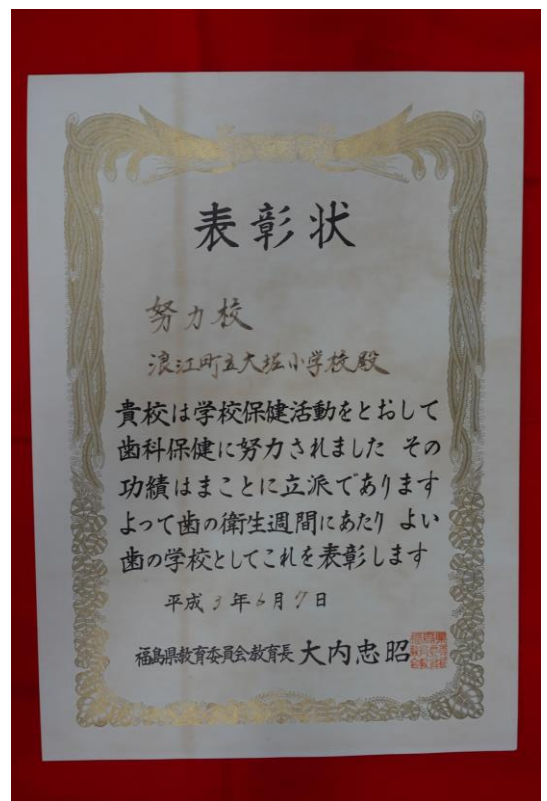 表彰状
努力校
浪江町立大堀小学校殿
貴校は学校保健活動をとおして
歯科保健に努力されました その
功績はまことに立派であります
よって歯の衛生週間にあたり よい
歯の学校としてこれを表彰します
平成3年6月7日
福島県教育委員会教育長 大内忠昭